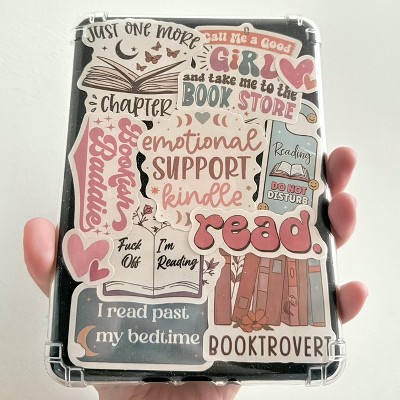 JUST ONE MORE
CHAPTER
Call Me a Good
GIRL
and take me to the
BOOK STORE
Bookish
Baddie
emotional
SUPPORT
kindle
Reading
DO NOT
DISTURB
read.
Fuck
Off
I'm
Reading
I read past
my bedtime
BOOKTROVERT